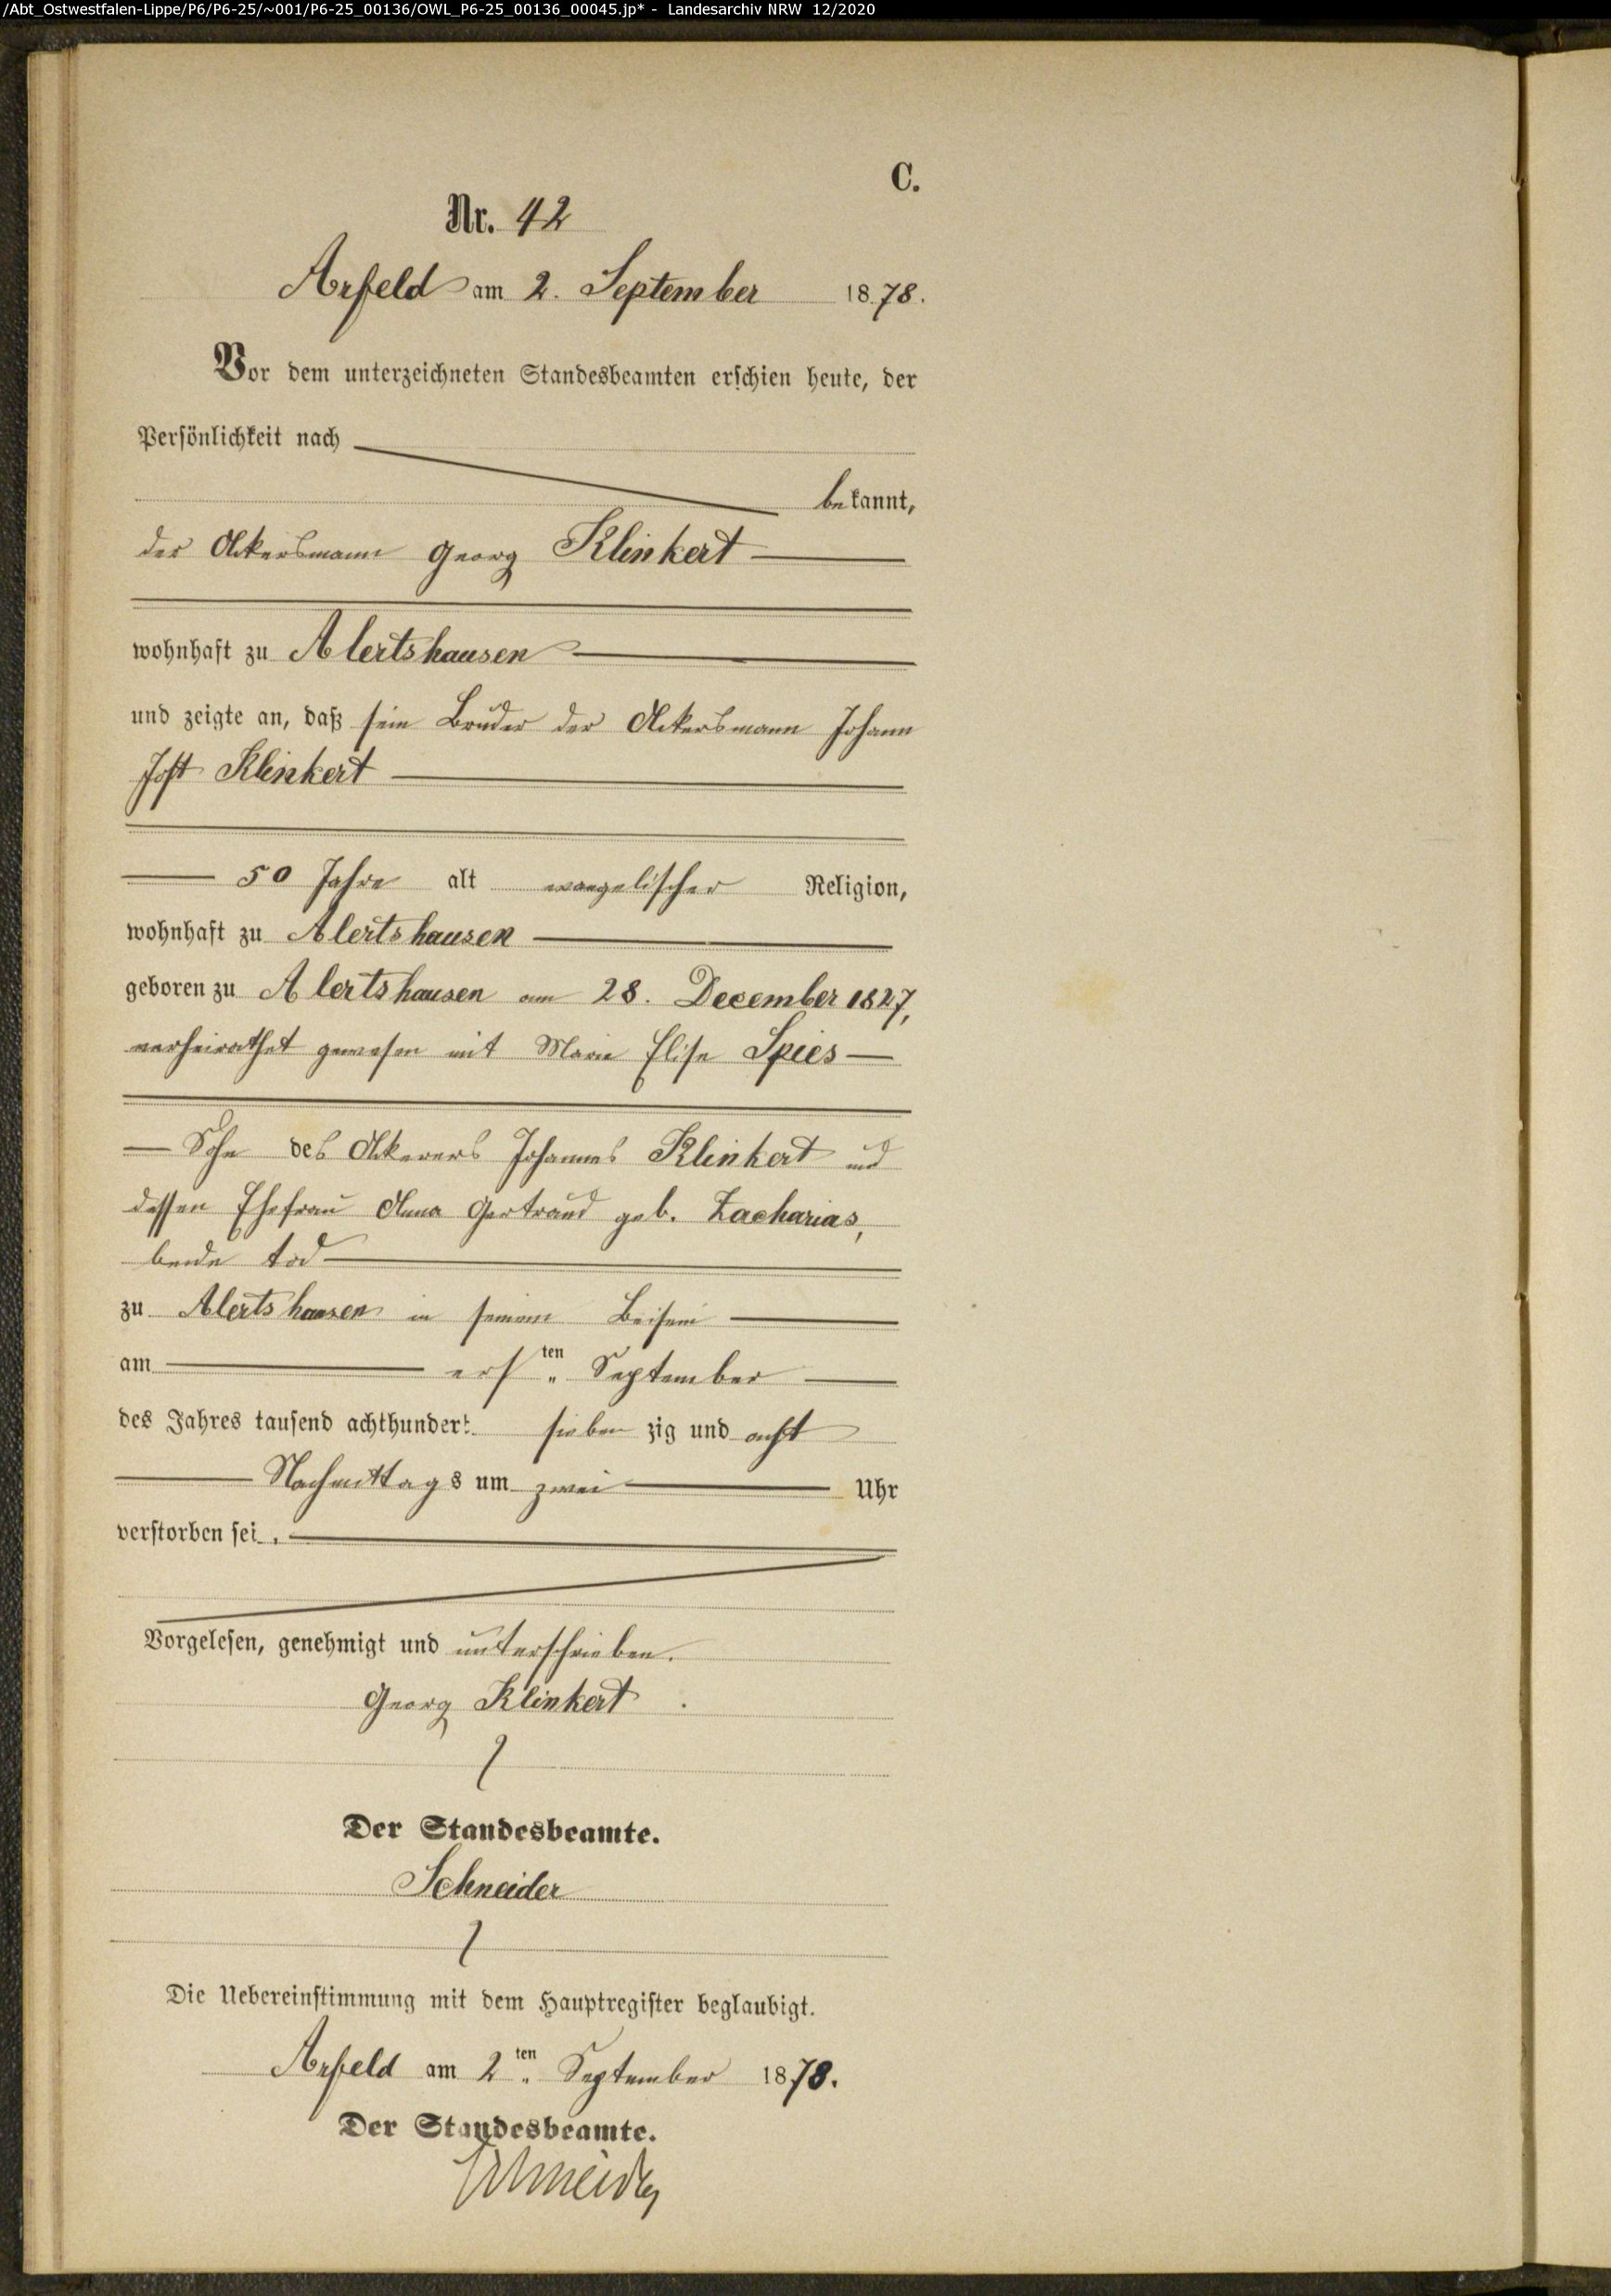 /Abt_Ostwestfalen-Lippe/P6/P6-25/~001/P6-25_00136/OWL_P6-25_00136_00045.jp* - Landesarchiv NRW 12/2020
C.
Nr. 42
Arfeld am 2. September 1878.
Vor dem unterzeichneten Standesbeamten erschien heute, der
Persönlichkeit nach
bekannt,
der Ackersmann Georg Klinkert
wohnhaft zu Alertshausen
und zeigte an, daß sein Bruder der Ackersmann Johann
Jost Klinkert
50 Jahre alt evangelischer Religion,
wohnhaft zu Alertshausen
geboren zu Alertshausen am 28. December 1827,
verheirathet gewesen mit Marie Elise Spies
Sohn des Ackerers Johannes Klinkert und
dessen Ehefrau Anna Gertraud geb. Zacharias,
beide tod
zu Alertshausen in seinem Beisein
am ersten September
des Jahres tausend achthundert siebenzig und acht
Nachmittags um zwei Uhr
verstorben sei.
Vorgelesen, genehmigt und unterschrieben.
Georg Klinkert.
Der Standesbeamte.
Schneider
Die Uebereinstimmung mit dem Hauptregister beglaubigt.
Arfeld am 2ten September 1878.
Der Standesbeamte.
Schneider